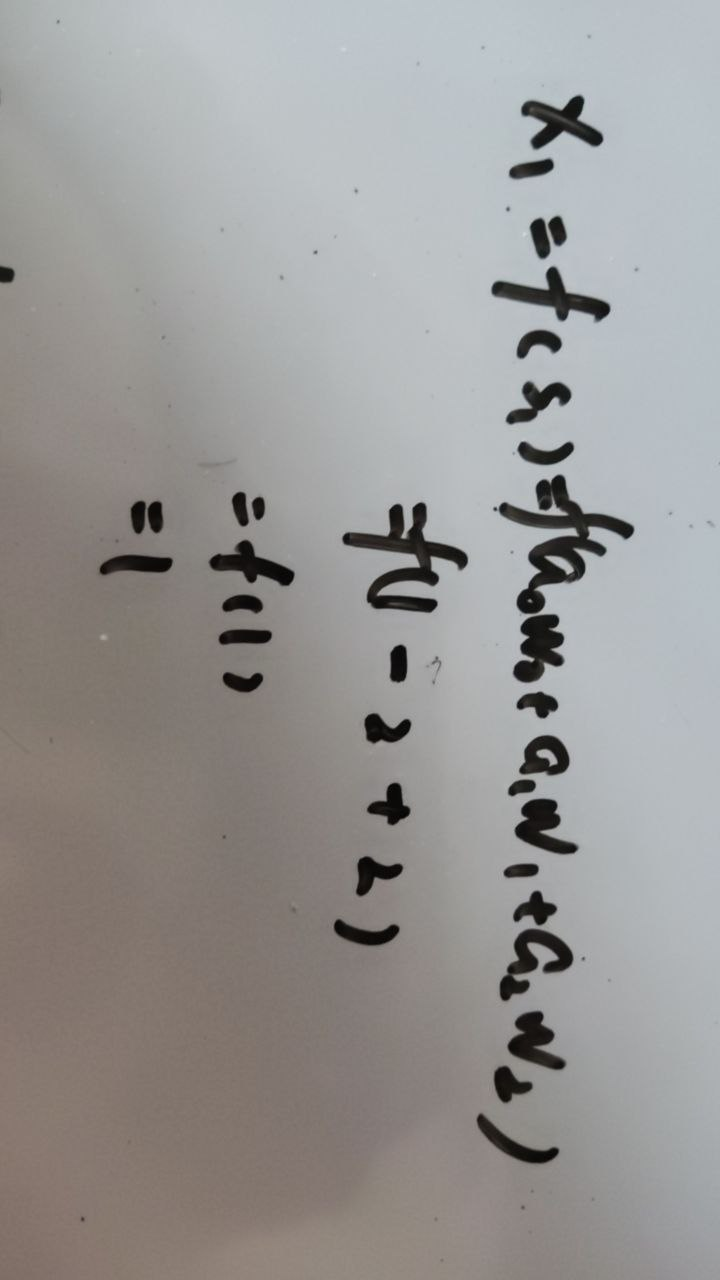 x₁ = f(s₁) = f(a₀w₀ + a₁w₁ + a₂w₂)
= f(1 - 2 + 2)
= f(1)
= 1